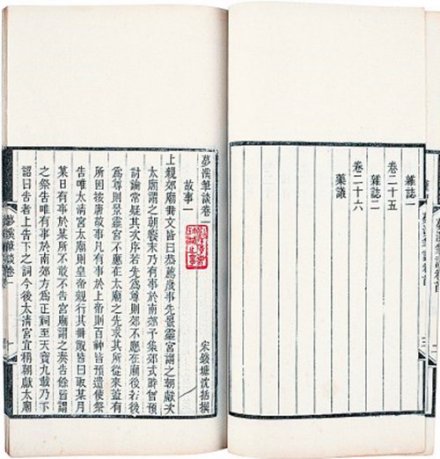 夢溪筆談卷首
三
雜誌一
卷二十五
雜誌二
卷二十六
藥議
夢溪筆談卷一
宋錢塘沈括撰
故事一
上親郊廟冊文皆曰恭薦歲事先景靈宮謂之朝獻次
太廟謂之朝饗末乃有事於南郊予集郊式時曾預
討論常疑其次序若先為尊則郊不應在廟後若後
為尊則景靈宮不應在太廟之先求其所從來蓋有
所因按唐故事凡有事於上帝則百神皆預遣使祭
告唯太清宮太廟則皇帝親行其冊祝皆曰取某月
某日有事於某所不敢不告宮廟謂之奏告餘皆謂
之祭告唯有事於南郊方為正祠至天寶九載乃下
詔曰告者上告下之詞今後太清宮宜稱朝獻太廟
夢溪筆談卷一